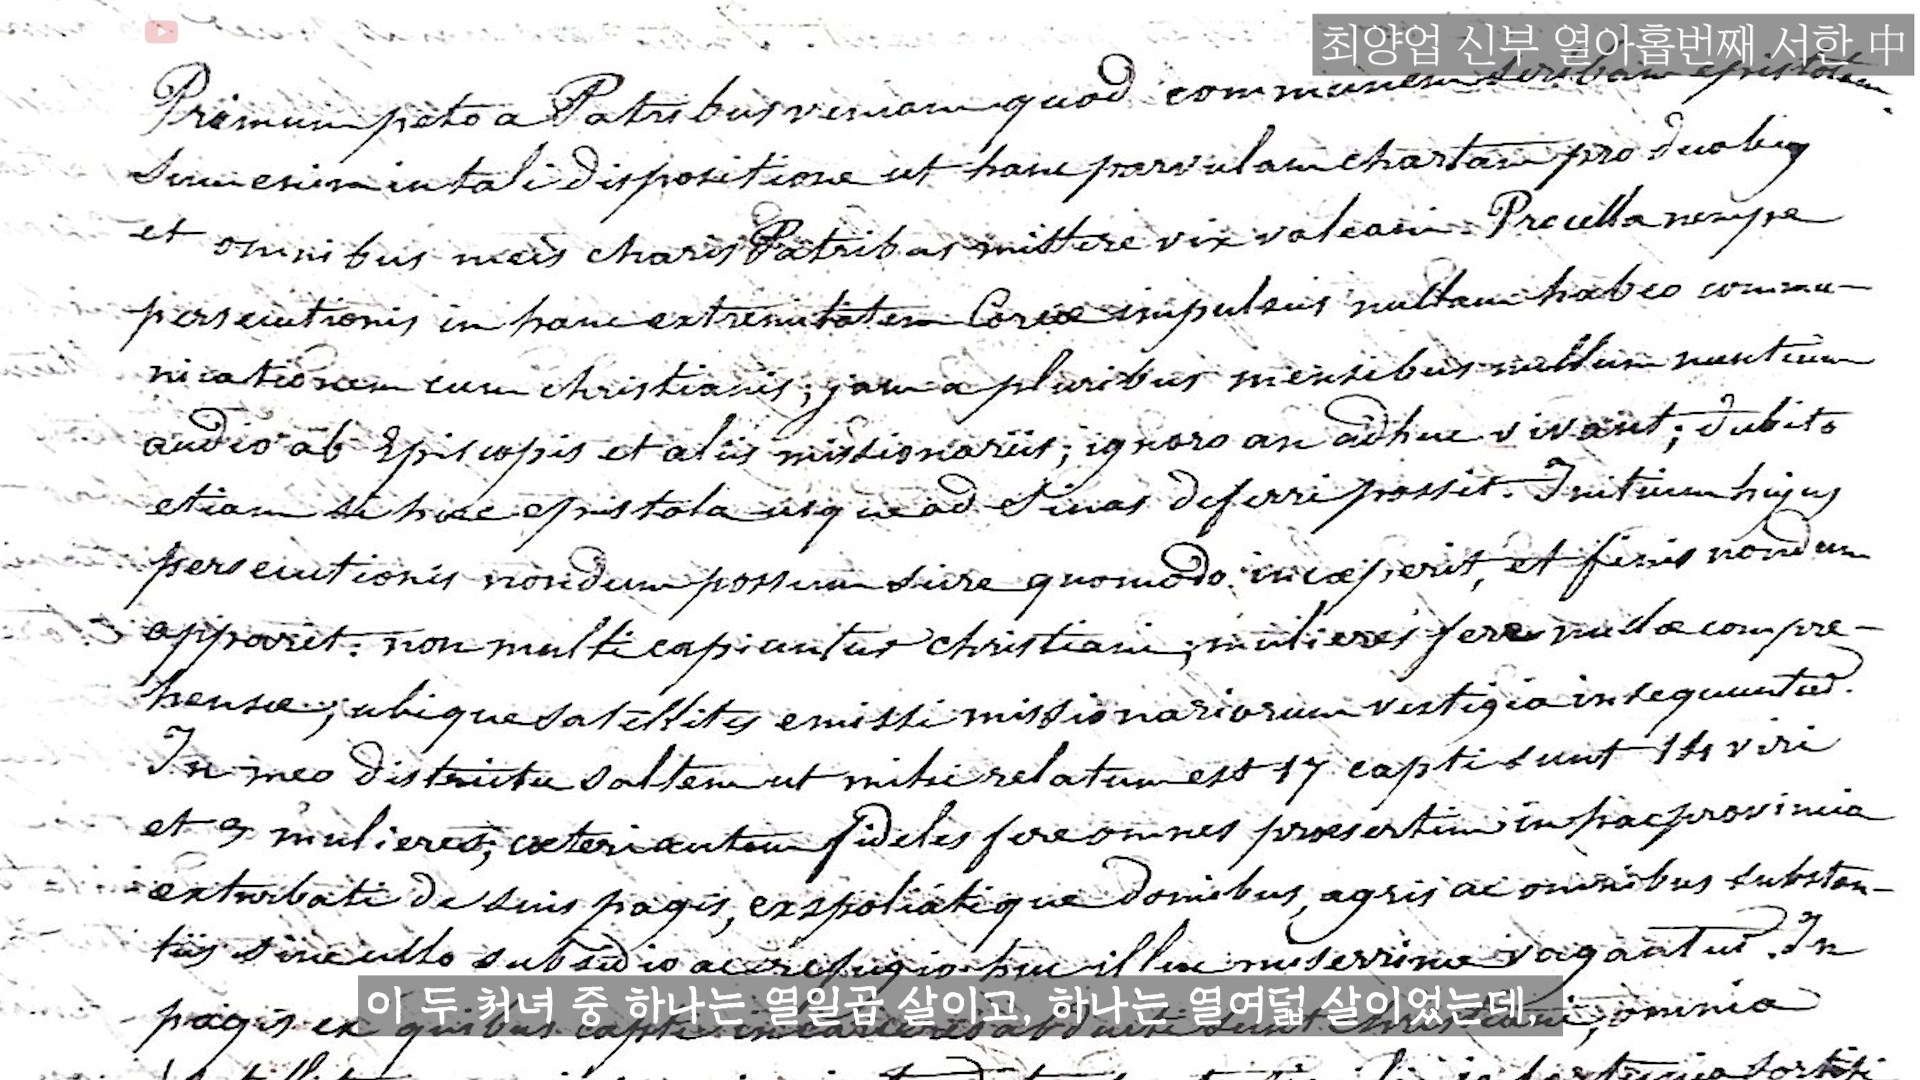 최양업 신부 열아홉번째 서한 中
Primum peto a Patribus veniam quod communem scribam epistolam.
Sum enim in tali dispositione ut hanc parvulam chartam pro duobus
et omnibus meis charis Patribus mittere vix valeam. Procella nempe
persecutionis in hanc extremitatem Coreæ impulsus nullam habeo commu-
nicationem cum christianis; jam a pluribus mensibus nullum nuntium
audio ab Episcopis et aliis missionariis; ignoro an adhuc vivant; dubito
etiam si hæc epistola usque ad Sinas deferri possit. Initium hujus
persecutionis nondum possum scire quomodo incæperit, et finis nondum
apparet. non multi capiuntur christiani; mulieres fere nullæ compre-
hensæ; ubique satellites emissi missionariorum vestigia insequuntur.
In meo districtu saltem ut mihi relatum est 17 capti sunt 14 viri
et 3 mulieres; cæteri autem fideles fere omnes præsertim in hac provincia
exturbati de suis pagis, exspoliatique domibus, agris ac omnibus substan-
tiis sine ullo subsidio ac refugio huc illuc miserrime vagantur. In
pagis ex quibus capti in carceres abducti sunt christiani, omnia
이 두 처녀 중 하나는 열일곱 살이고, 하나는 열여덟 살이었는데,